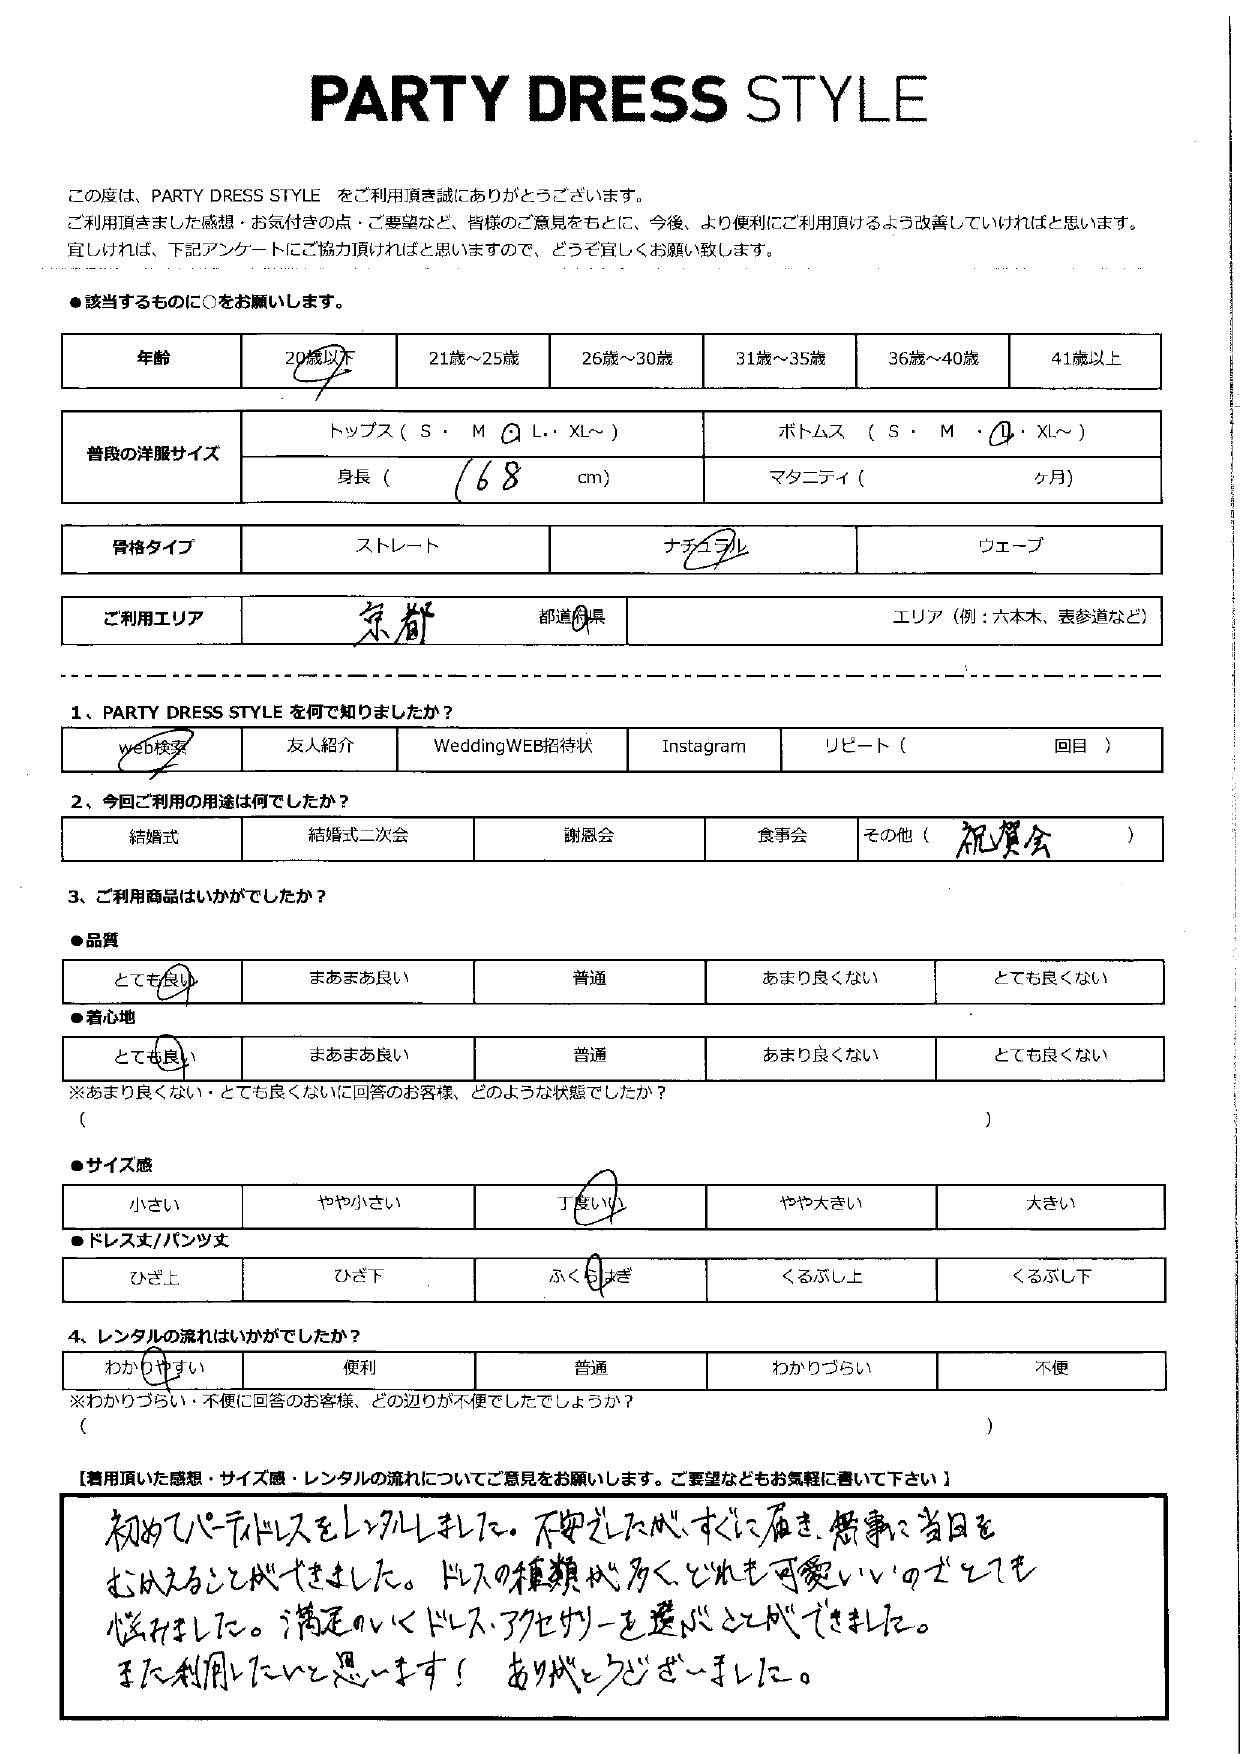 PARTY DRESS STYLE
この度は、PARTY DRESS STYLE をご利用頂き誠にありがとうございます。
ご利用頂きました感想・お気付きの点・ご要望など、皆様のご意見をもとに、今後、より便利にご利用頂けるよう改善していければと思います。
宜しければ、下記アンケートにご協力頂ければと思いますので、どうぞ宜しくお願い致します。
●該当するものに○をお願いします。
年齢 20歳以下 21歳～25歳 26歳～30歳 31歳～35歳 36歳～40歳 41歳以上
普段の洋服サイズ
トップス ( S ・ M ・ L ・ XL～ ) ボトムス ( S ・ M ・ L ・ XL～ )
身長 ( 168 cm) マタニティ ( ヶ月)
骨格タイプ ストレート ナチュラル ウェーブ
ご利用エリア 京都 都道府県 エリア（例：六本木、表参道など）
1、PARTY DRESS STYLE を何で知りましたか？
web検索 友人紹介 WeddingWEB招待状 Instagram リピート ( 回目 )
2、今回ご利用の用途は何でしたか？
結婚式 結婚式二次会 謝恩会 食事会 その他 ( 祝賀会 )
3、ご利用商品はいかがでしたか？
●品質
とても良い まあまあ良い 普通 あまり良くない とても良くない
●着心地
とても良い まあまあ良い 普通 あまり良くない とても良くない
※あまり良くない・とても良くないに回答のお客様、どのような状態でしたか？
( )
●サイズ感
小さい やや小さい 丁度いい やや大きい 大きい
●ドレス丈/パンツ丈
ひざ上 ひざ下 ふくらはぎ くるぶし上 くるぶし下
4、レンタルの流れはいかがでしたか？
わかりやすい 便利 普通 わかりづらい 不便
※わかりづらい・不便に回答のお客様、どの辺りが不便でしたでしょうか？
( )
【着用頂いた感想・サイズ感・レンタルの流れについてご意見をお願いします。ご要望などもお気軽に書いて下さい 】
初めてパーティドレスをレンタルしました。不安でしたが、すぐに届き、無事に当日を
むかえることができました。ドレスの種類が多く、どれも可愛いいのでとても
悩みました。満足のいくドレス・アクセサリーを選ぶことができました。
また利用したいと思います！ ありがとうございました。